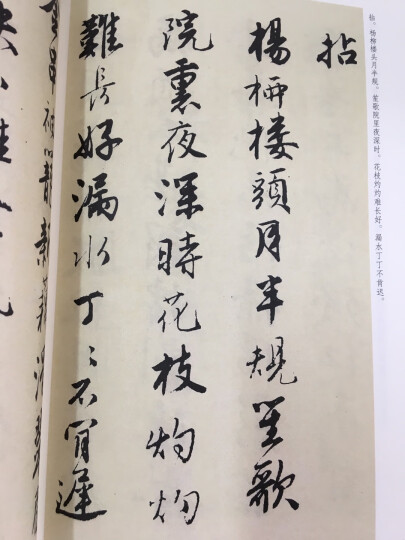 拈。杨柳楼头月半规。笙歌院里夜深时。花枝灼灼难长好。漏水丁丁不肯迟。
拈
楊柳樓頭月半規笙歌
院裏夜深時花枝灼灼
難長好漏水丁〻不肯遲